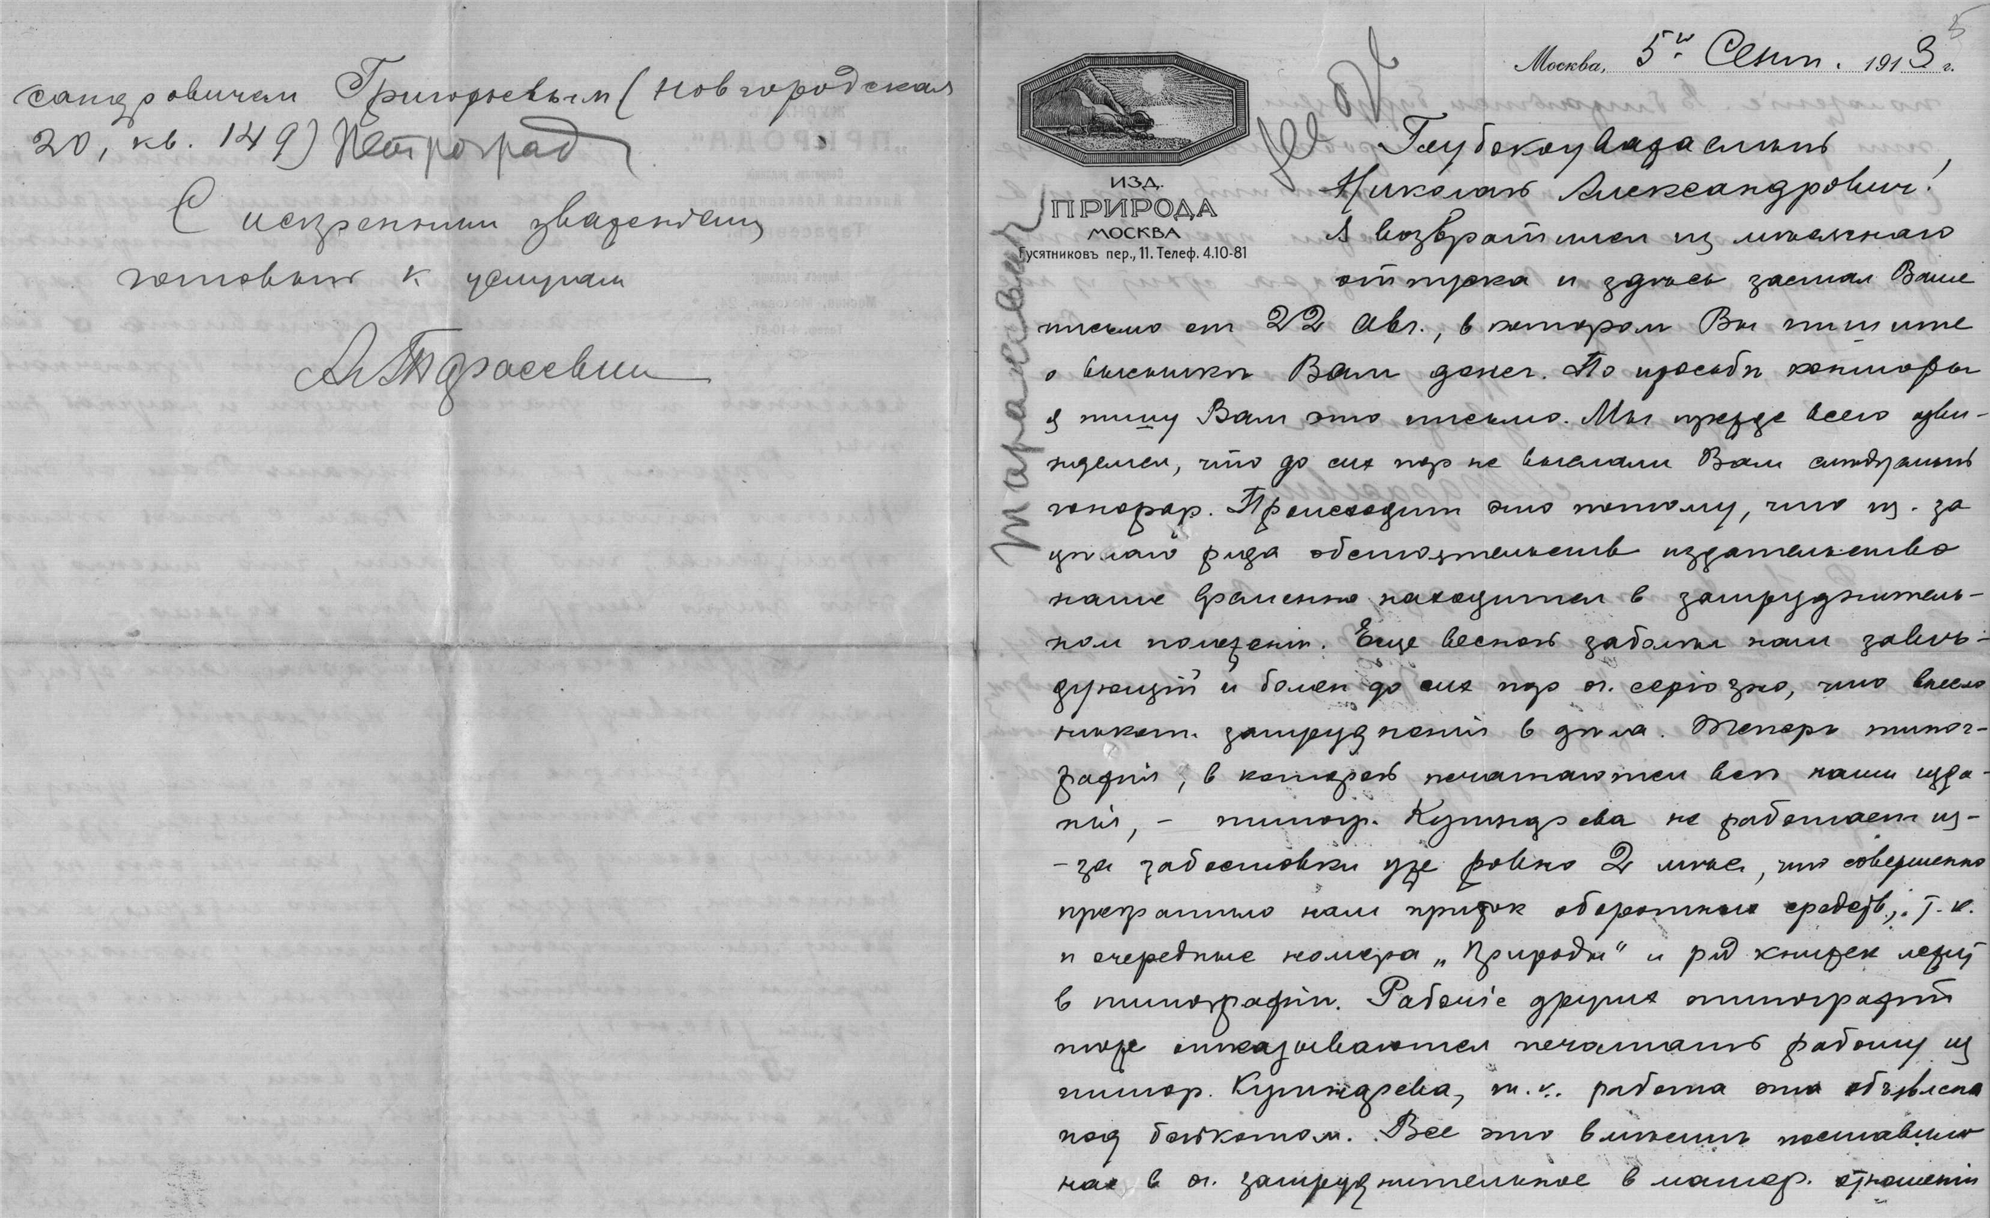 сандровичем Григорьевым (Новгородская
20, кв. 149) Петроград
С искренним уважением
готовый к услугам
Л. Тарасевич
5
Москва, 5го Сент. 1913 г.
ИЗД.
ПРИРОДА
МОСКВА
Гусятниковъ пер., 11. Телеф. 4.10-81
Тарасевич
Глубокоуважаемый
Николай Александрович!
Я возвратился из месячнаго
отпуска и здесь застал Ваше
письмо от 22 авг., в котором Вы пишите
о высылкѣ Вам денег. По просьбѣ конторы
я пишу Вам это письмо. Мы прежде всего изви-
няемся, что до сих пор не выслали Вам слѣдуемый
гонорар. Происходит это потому, что из-за
цѣлаго ряда обстоятельств издательство
наше временно находится в затруднитель-
ном положеніи. Еще весной заболѣл наш завѣ-
дующій и болен до сих пор оч. серіозно, что внесло
нѣкот. затрудненія в дѣла. Теперь типог-
рафія, в которой печатаются всѣ наши изда-
нія, – типогр. Кушнерева не работает из-
-за забастовки уже ровно 2 мѣс., что совершенно
прекратило нам приток оборотных средств, т.к.
и очередные номера „Природы" и ряд книжек лежит
в типографіи. Рабочіе других типографій
тоже отказываются печатать работу из
типогр. Кушнерева, т.к. работа эта объявлена
под бойкотом. Все это вмѣстѣ поставило
нас в оч. затруднительное в матер. отношеніи